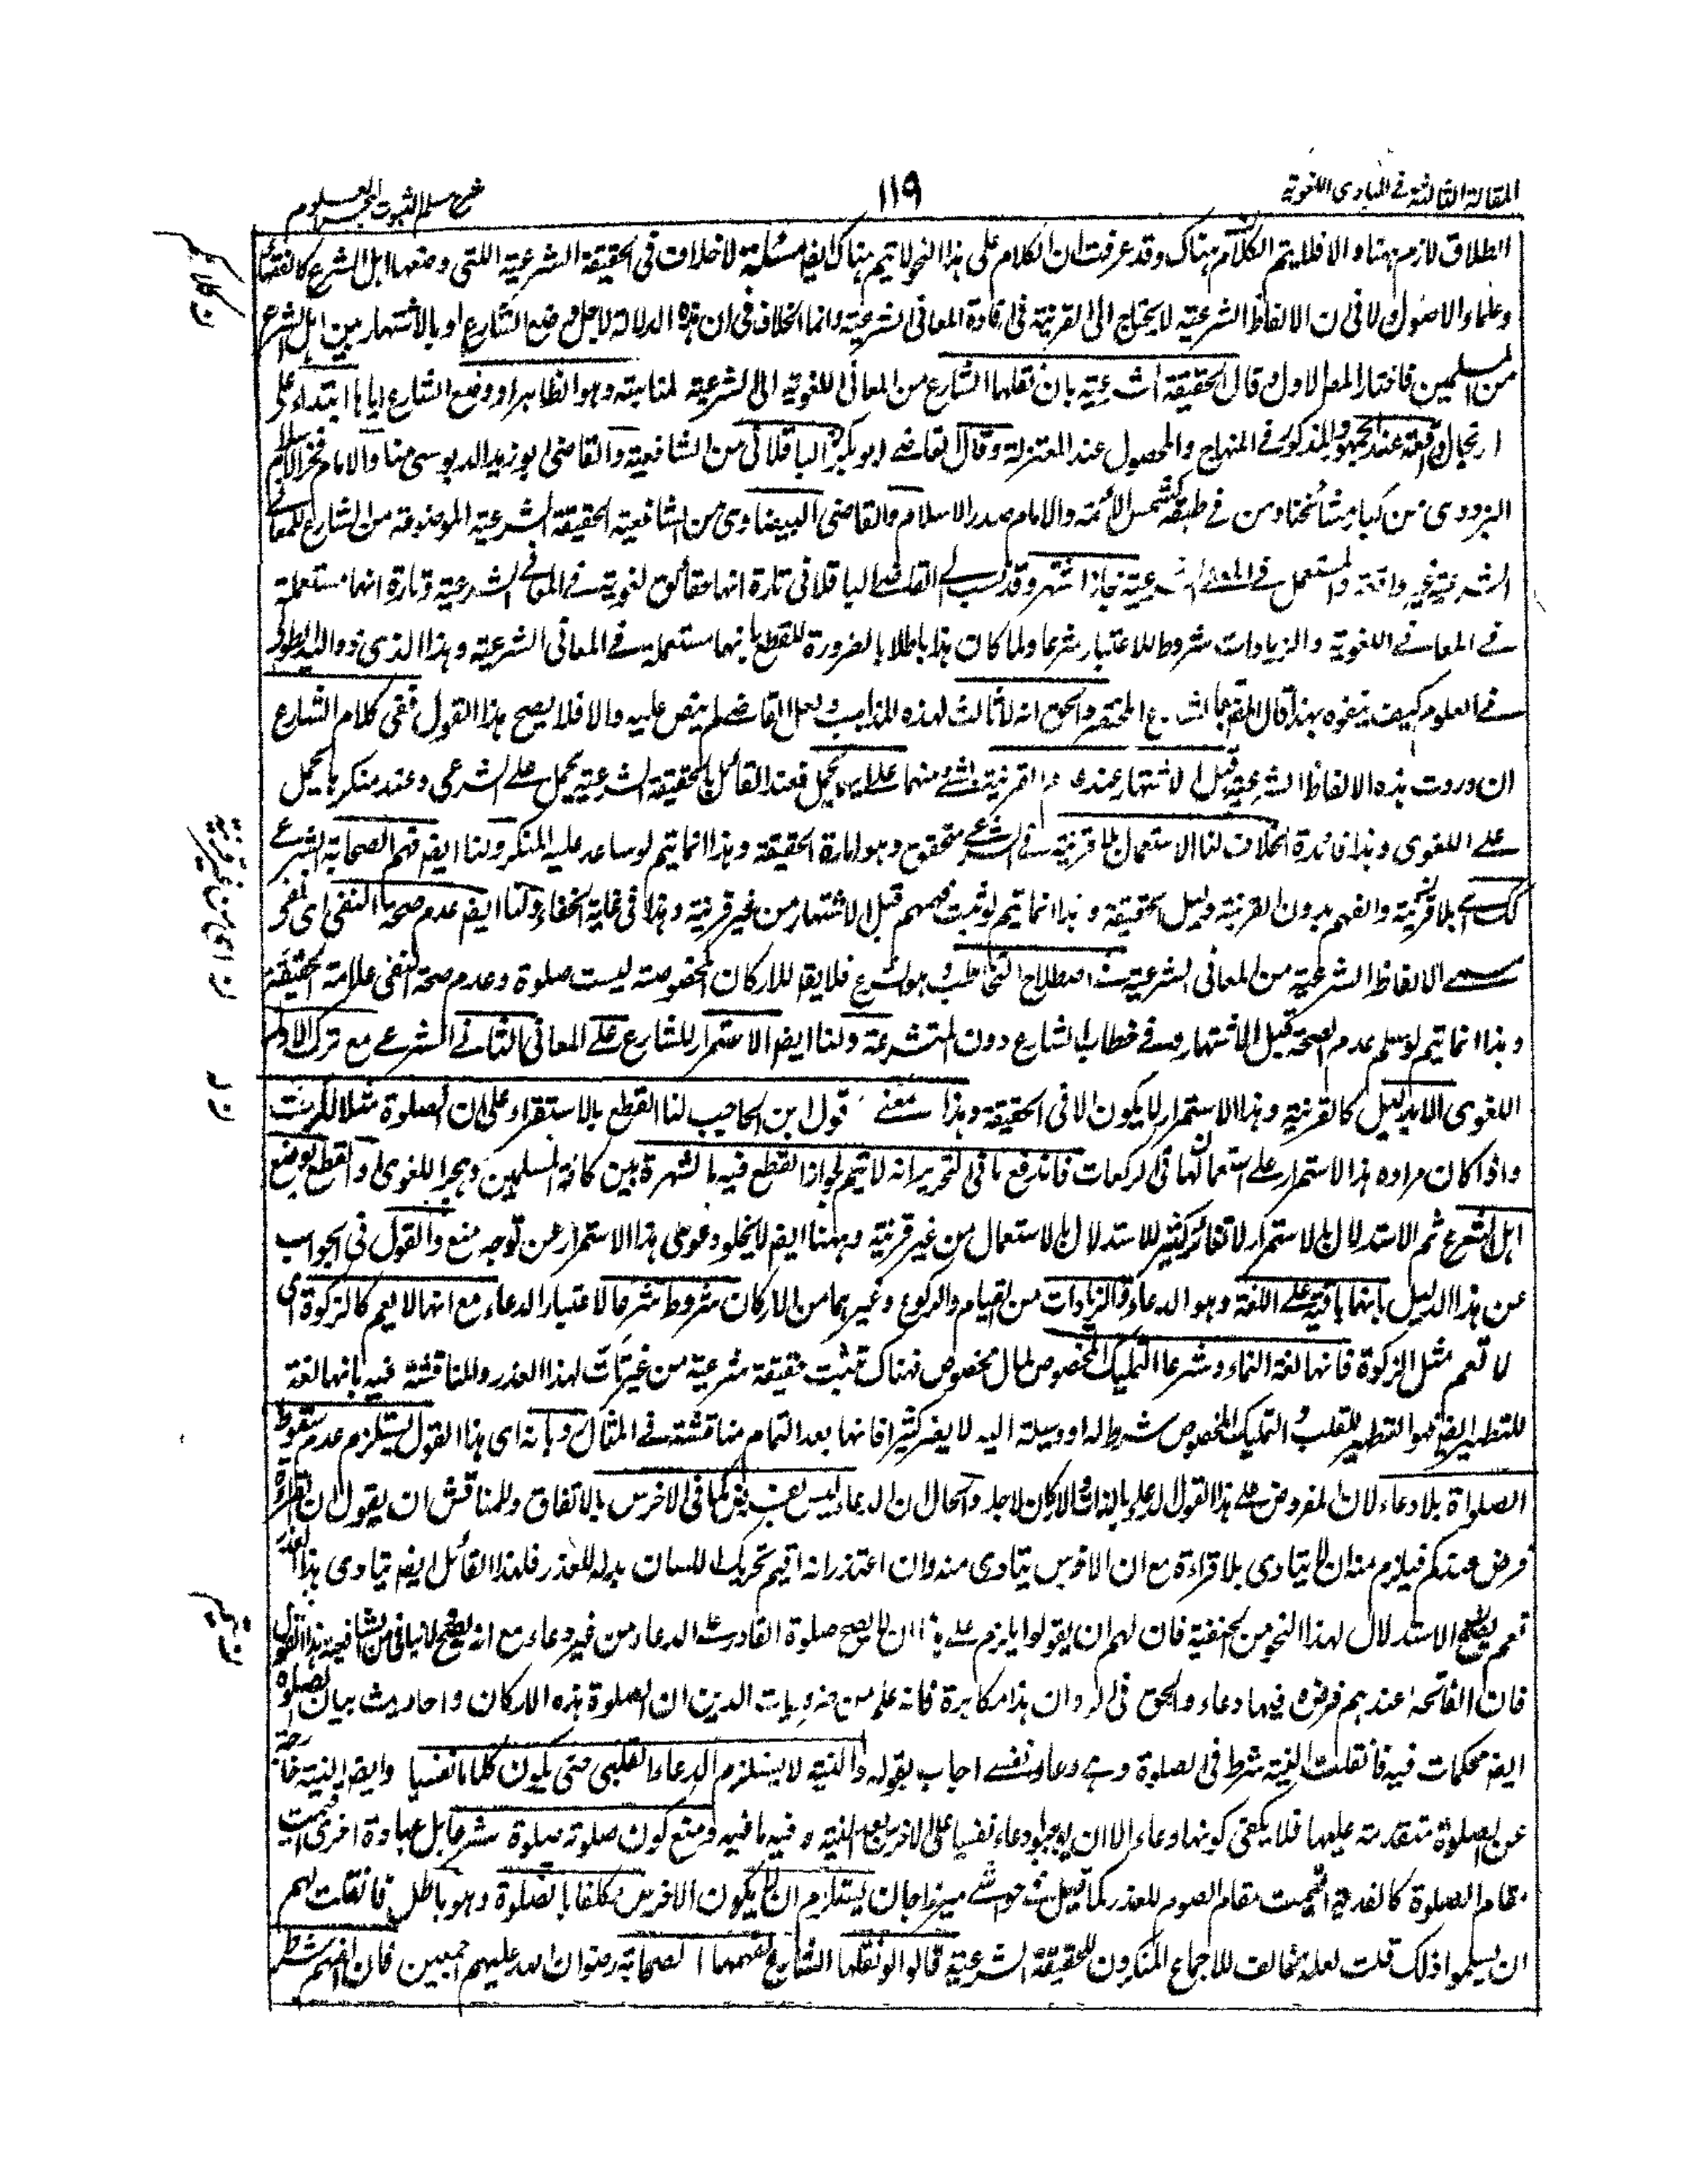 المقالة الثالثة في المبادى اللغوية
١١٩
شرح مسلم الثبوت لبحر العلوم
الطلاق لازم ههنا والا فلا يتم الكلام هناك وقد عرفت ان الكلام على هذا النحو لا يتم هناك ايضا مسئلة لا خلاف في الحقيقة الشرعية اللتى وضعها اهل الشرع كالفقهاء
وعلماء الاصول ولا في ان الالفاظ الشرعية لا يحتاج الى القرينة في افادة المعاني الشرعية وانما الخلاف في ان هذه الدلالة لاجل وضع الشارع او بالاشتهار بين اهل الشرع
من المسلمين فاختار المص الاول وقال الحقيقة الشرعية بان نقلها الشارع من المعاني اللغوية الى الشرعية لمناسبة وهو الظاهر او وضع الشارع اياها ابتداء على
ارتجال واقعة عند الجمهور والمذكور في المنهاج والمحصول عند المعتزلة وقال القاضي ابو بكر الباقلاني من الشافعية والقاضي ابو زيد الدبوسي منا والامام فخر الاسلام
البزدوي من كبار مشائخنا ومن في طبقته كشمس الائمة والامام صدر الاسلام والقاضي البيضاوي من الشافعية الحقيقة الشرعية الموضوعة من الشارع للمعاني
الشرعية غير واقعة والمستعمل في المعاني الشرعية مجاز اشتهر وقد نسب الى القاضي الباقلاني تارة انها حقائق لغوية في المعاني الشرعية وتارة انها مستعملة
في المعاني اللغوية والزيادات شروط للاعتبار شرعا ولما كان هذا باطلا بالضرورة للقطع بانها مستعملة في المعاني الشرعية وهذا الذي ذو اليد الطولى
في العلوم كيف يتفوه بهذا قال المص تبعا لشارع المختصر والحق انه لا ثالث لهذه المذاهب ولعل القاضي لم ينص عليه والا فلا يصح هذا القول ففي كلام الشارع
ان وردت هذه الالفاظ الشرعية قبل الاشتهار عنده عدم القرينة لشئ منهما على ايهما يحمل فعند القائل بالحقيقة الشرعية يحمل على الشرعي وعند منكرها يحمل
على اللغوى وهذا فائدة الخلاف لنا الاستعمال بلا قرينة في الشرعي متحقق وهو امارة الحقيقة وهذا انما يتم لو ساعد عليه المنكر ولنا ايضا فهم الصحابة الشرعي
كذلك بلا قرينة والفهم بدون القرينة دليل الحقيقة وهذا انما يتم لو ثبت فهمهم قبل الاشتهار من غير قرينة وهذا في غاية الخفاء ولنا ايضا عدم صحة النفى اى نفى
مسمى الالفاظ الشرعية من المعاني الشرعية في اصطلاح التخاطب وهو الشرع فلا يقال للاركان المخصوصة ليست صلوة وعدم صحة النفى علامة الحقيقة
وهذا انما يتم لو سلم عدم الصحة قبل الاشتهار وفي خطاب الشارع دون المتشرعة ولنا ايضا الاستمرار للشارع على المعاني الثاني الشرعي مع ترك الاول
اللغوى الا بدليل كالقرينة وهذا الاستمرار لا يكون الا في الحقيقة وهذا معنى قول ابن الحاجب لنا القطع بالاستقراء على ان الصلوة مثلا للركعات
واذا كان مراده هذا الاستمرار على استعمالها في الركعات فاندفع ما في التحرير انه لا يتم لجواز القطع فيه بالشهرة بين كافة المسلمين وهجر اللغوى والقطع بوضع
اهل الشرع ثم الاستدلال بالاستمرار لا تغاير كثير للاستدلال بالاستعمال من غير قرينة وههنا ايضا لا يخلو دعوى هذا الاستمرار عن توجه منع والقول في الجواب
عن هذا الدليل بانها باقية على اللغة وهو الدعاء والزيادات من القيام والركوع وغيرهما من الاركان شروط شرعا لاعتبار الدعاء مع انها لا يعم كالزكوة اى
لا تعم مثل الزكوة فانها لغة النماء وشرعا التمليك المخصوص لمال مخصوص فهناك تثبت حقيقة شرعية من غير تأت لهذا العذر والمناقشة فيه بانها لغة
للتطهير ايضا فهو التطهير للقلب والتمليك المخصوص شرط له او وسيلة اليه لا يضر كثيرا فانها بعد التمام مناقشة في المثال وبانه اى هذا القول يستلزم عدم سقوط
الصلواة بلا دعاء لان المفروض على هذا القول الدعاء بالذات والاركان لاجله والحال ان الدعاء ليس بفرض كما في الاخرس بالاتفاق وللمناقش ان يقول ان القراءة
فرض عندكم فيلزم منه ان لا يتادى بلا قراءة مع ان الاخرس يتادى منه وان اعتذر انه اقيم تحريك اللسان بدله للعذر فلهذا القائل ايضا يتادى بهذا العذر
نعم يصلح الاستدلال لهذا النحو من الحنفية فان لهم ان يقولوا يلزم على هذا ان لا يصح صلوة القادر على الدعاء من غير دعاء مع انه يصح لا يتاتى من الشافعية هذا القول
فان الفاتحة عندهم فرض وفيها دعاء والحق في الرد ان هذا مكابرة فانه علم من ضروريات الدين ان الصلوة هذه الاركان واحاديث بيان الصلوة
ايضا محكمات فيه فان قلت النية شرط في الصلوة وهي دعاء نفسي اجاب بقوله والنية لا يستلزم الدعاء القلبى حتى يكون كلاما نفسيا وايضا النية خارجة
عن الصلوة متقدمة عليها فلا يكفى كونها دعاء الا ان يوجبوا دعاء نفسيا على الاخرس بعد النية وفيه ما فيه ومنع كون صلوته صلوة شرعا بل عبادة اخرى اقيمت
مقام الصلوة كالفدية اقيمت مقام الصوم للعذر كما قيل في حواشي ميرزا جان يستلزم ان لا يكون الاخرس مكلفا بالصلوة وهو باطل فان قلت لهم
ان يسلموا ذلك قلت لعله مخالف للاجماع المنكرون للحقيقة الشرعية قالوا لو نقلها الشارع لفهمها الصحابة رضوان الله عليهم اجمعين فان الفهم شرط